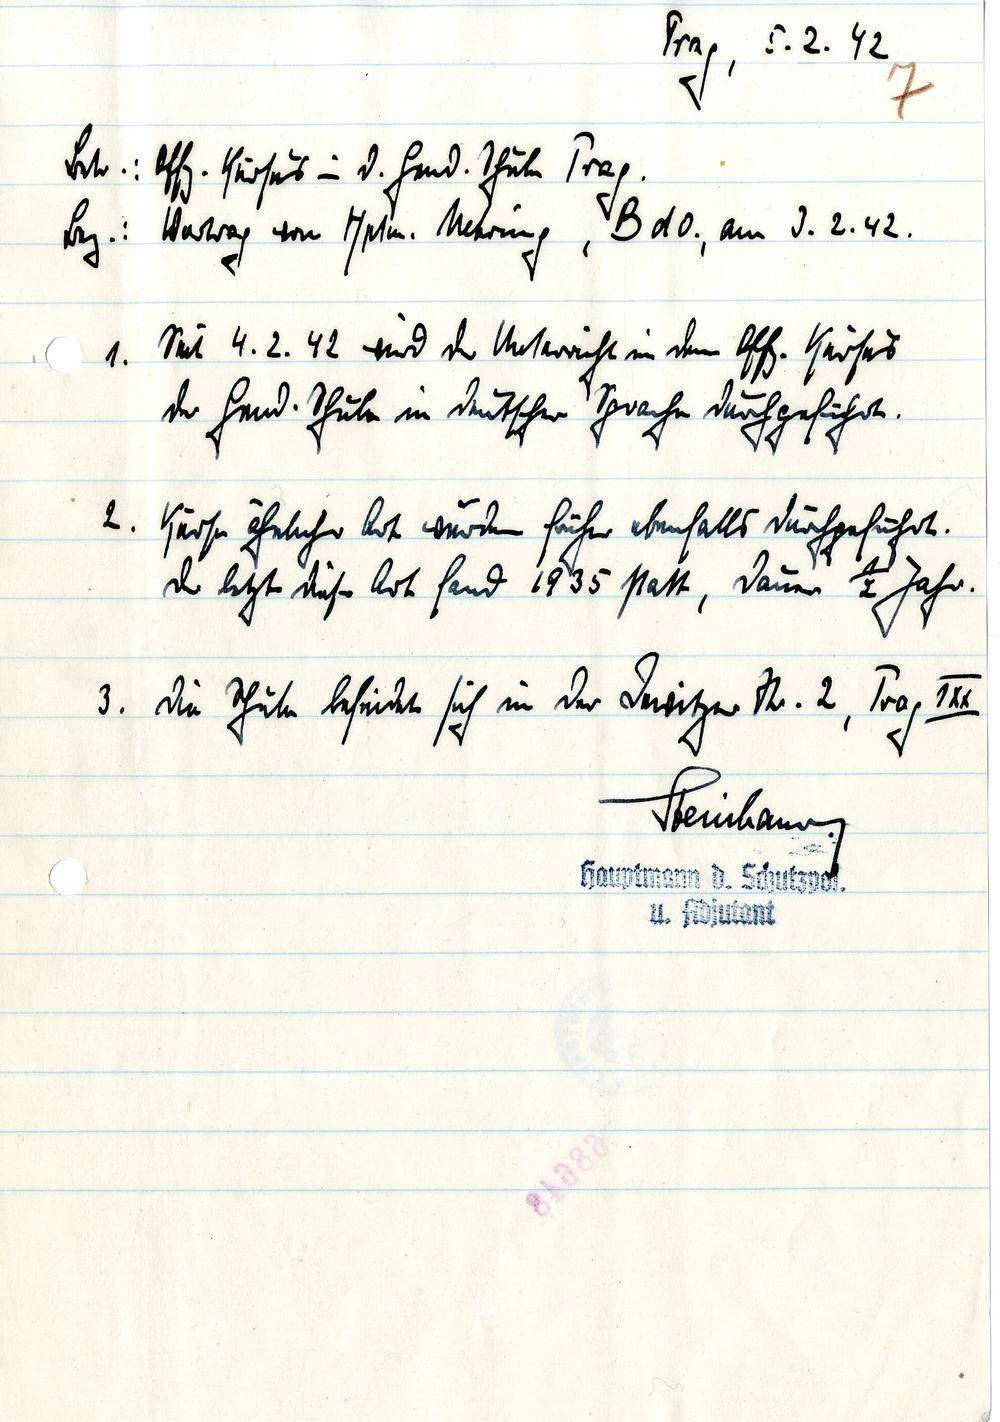 Prag, 5. 2. 42
7
Betr.: Offz. Kursus in d. Gend. Schule Prag.
Bez.: Vortrag von Hptm. Nehring, BdO., am 3. 2. 42.
1. Seit 4. 2. 42 wird der Unterricht in dem Offz. Kursus
der Gend. Schule in deutscher Sprache durchgeführt.
2. Kurse ähnlicher Art wurden früher ebenfalls durchgeführt.
Der letzte dieser Art fand 1935 statt, Dauer 1/2 Jahr.
3. Die Schule befindet sich in der Str. 2, Prag IXX
Hauptmann d. Schutzpol.
u. Adjutant
68648